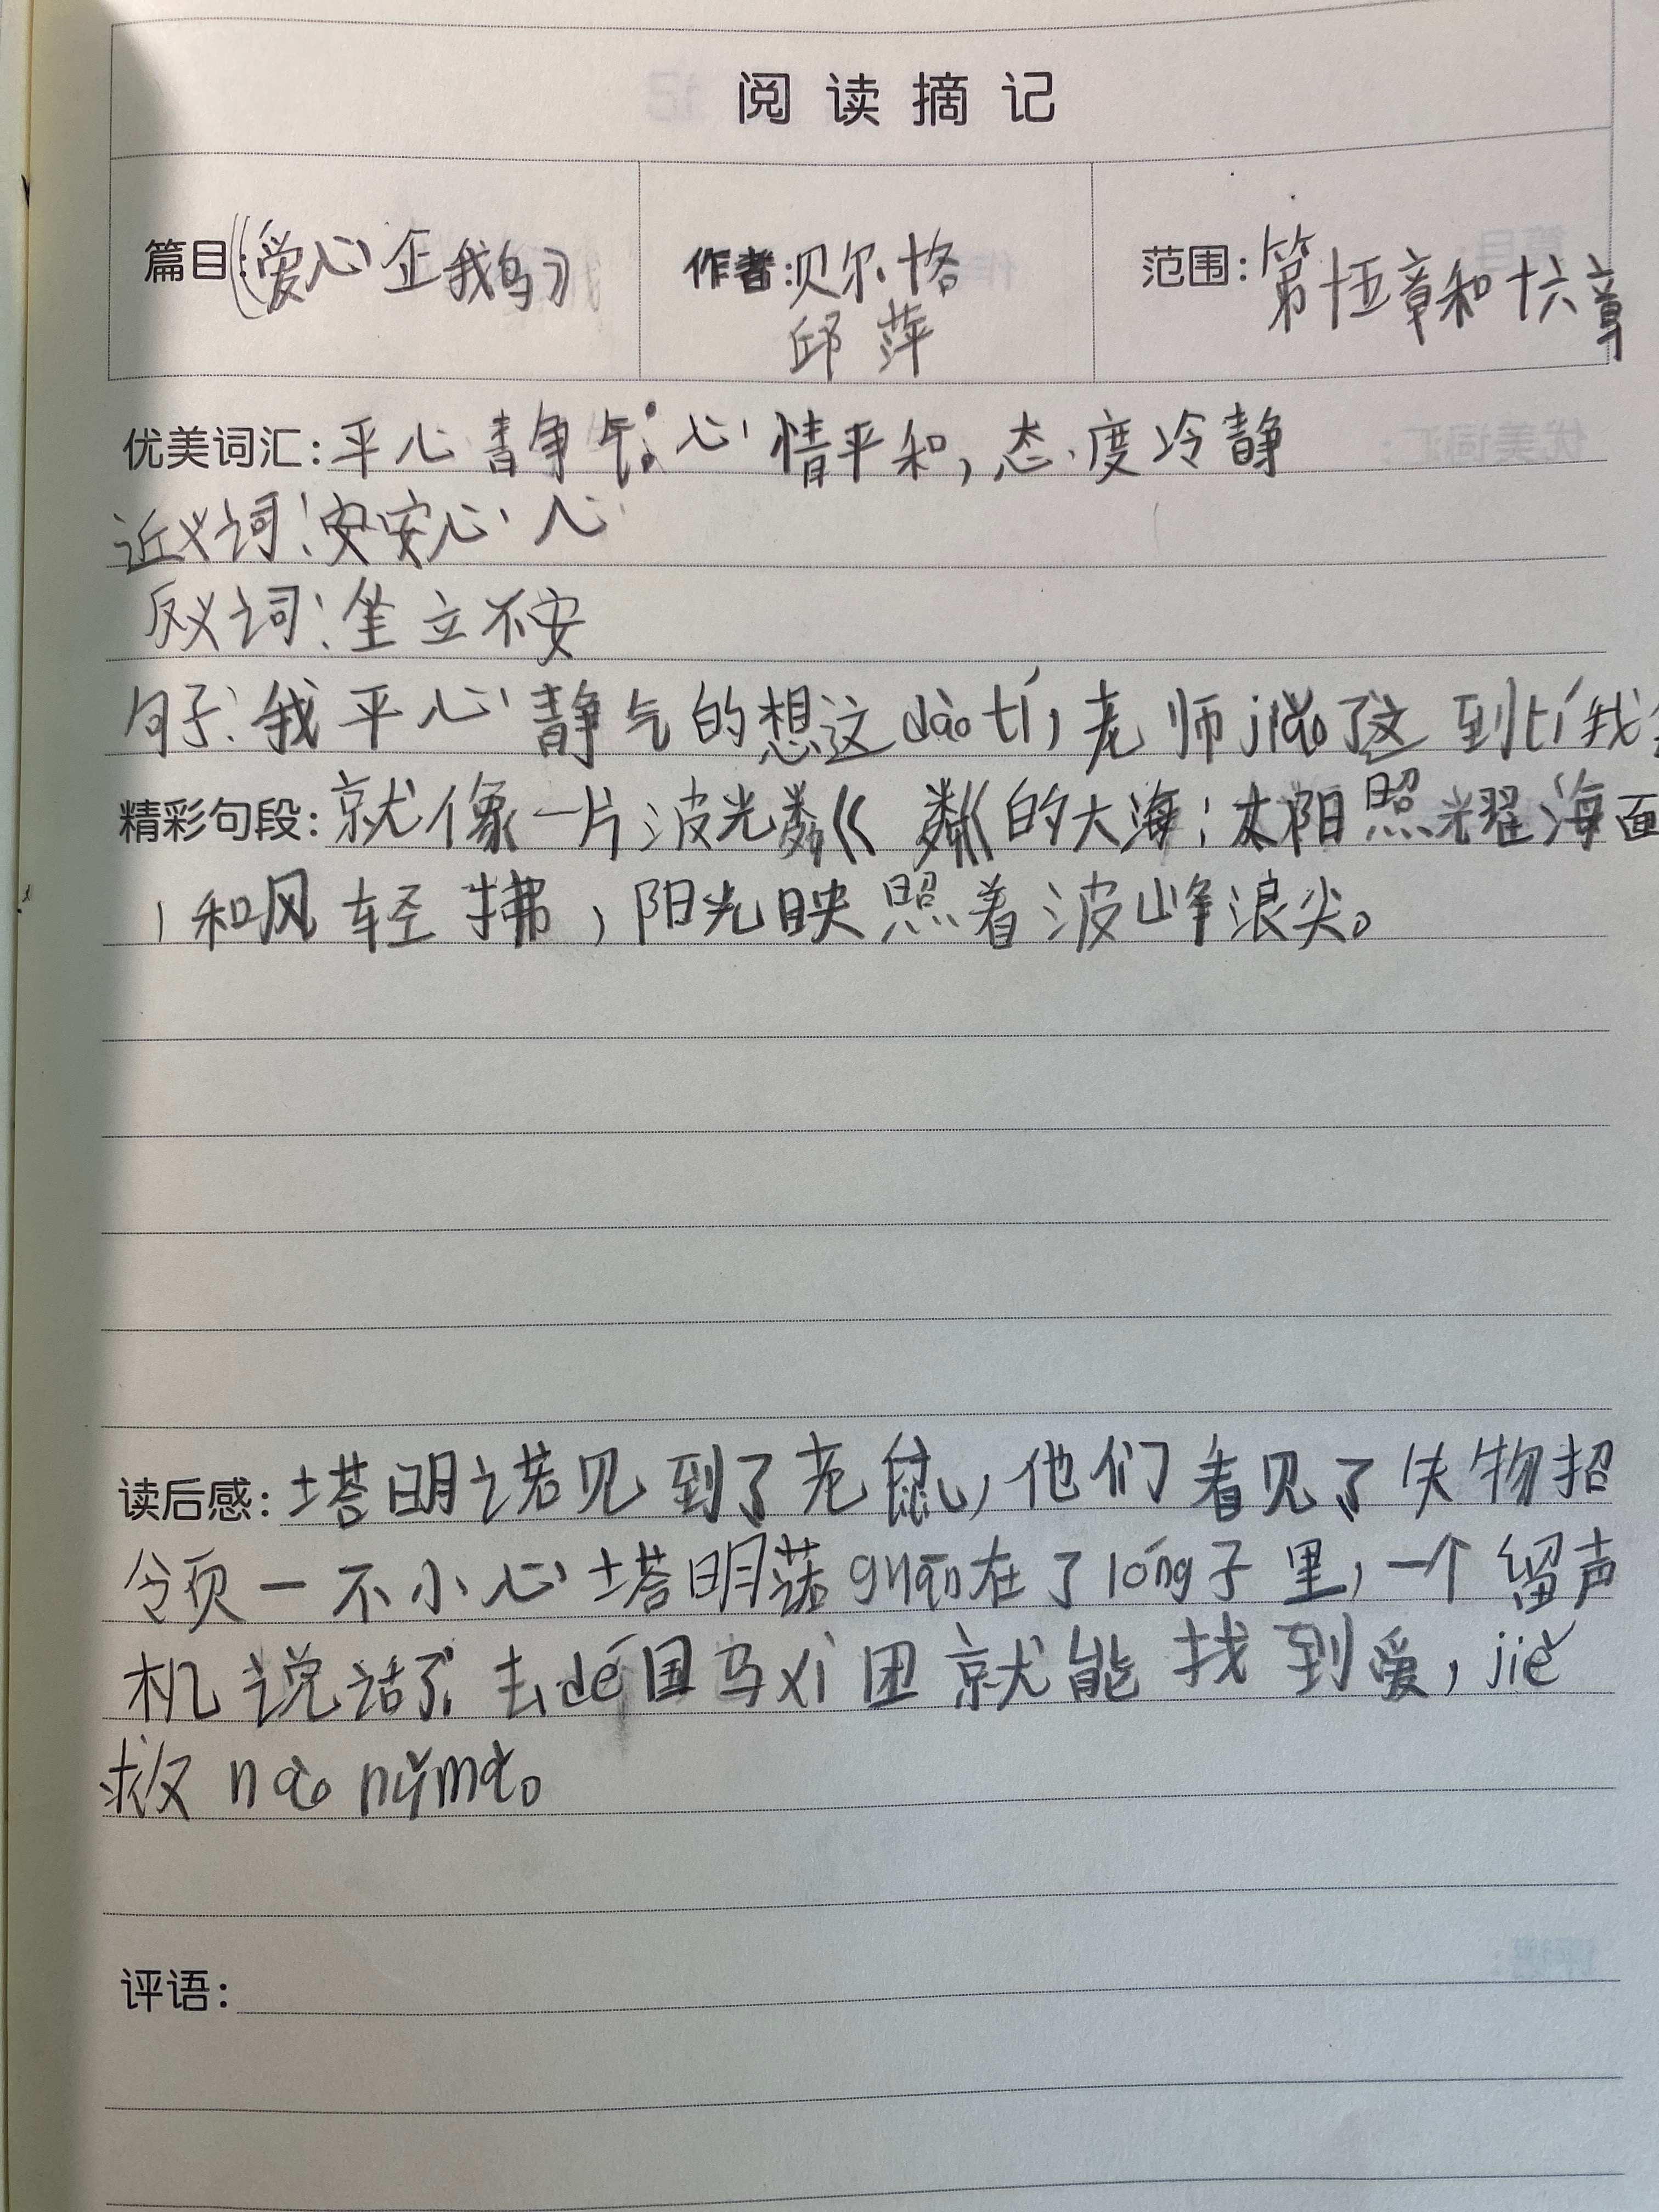 阅读摘记
篇目:《爱心企鹅》 作者:贝尔·格 邱萍 范围:第十五章和十六章
优美词汇:平心静气:心情平和,态度冷静
近义词:安安心心
反义词:坐立不安
句子:我平心静气的想这dào tí,老师jiāo了这到tí我
精彩句段:就像一片波光粼粼的大海:太阳照耀海面
,和风轻拂,阳光映照着波峰浪尖。
读后感:塔明诺见到了老鼠,他们看见了失物招
令页一不小心塔明诺guān在了lóng子里,一个留声
机说话了:去dé国马xì团就能找到爱,jiě
救
评语: